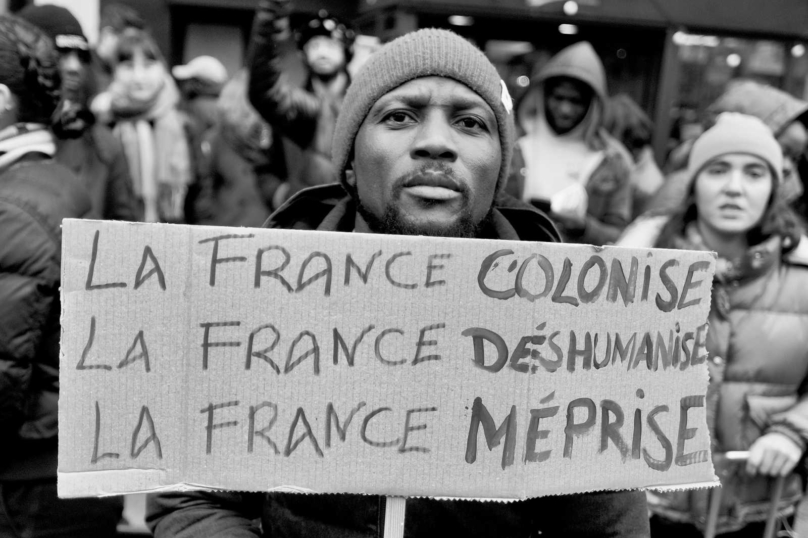 LA FRANCE COLONISE
LA FRANCE DÉSHUMANISE
LA FRANCE MÉPRISE